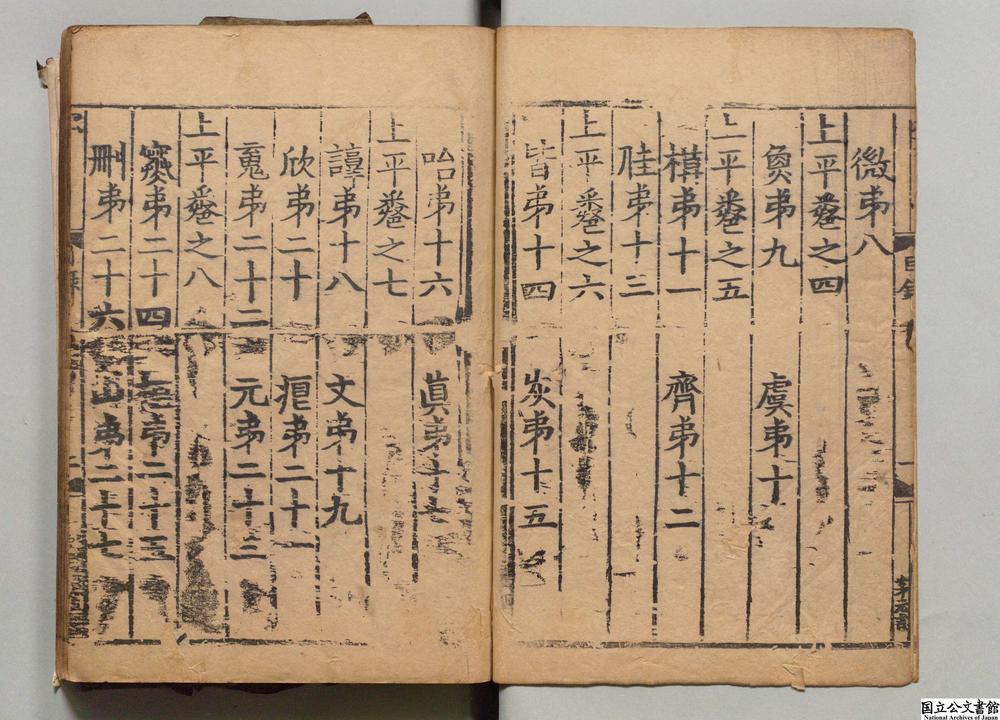 微弟八
上平卷之四
魚弟九 虞弟十
上平卷之五
橅弟十一 齊弟十二
佳弟十三
上平卷之六
皆弟十四 灰弟十五
咍弟十六 眞弟十七
上平卷之七
諄弟十八 文弟十九
欣弟二十 痕弟二十一
䰟弟二十二 元弟二十三
上平卷之八
寒弟二十四 弟二十五
刪弟二十六 山弟二十七
国立公文書館
National Archives of Japan